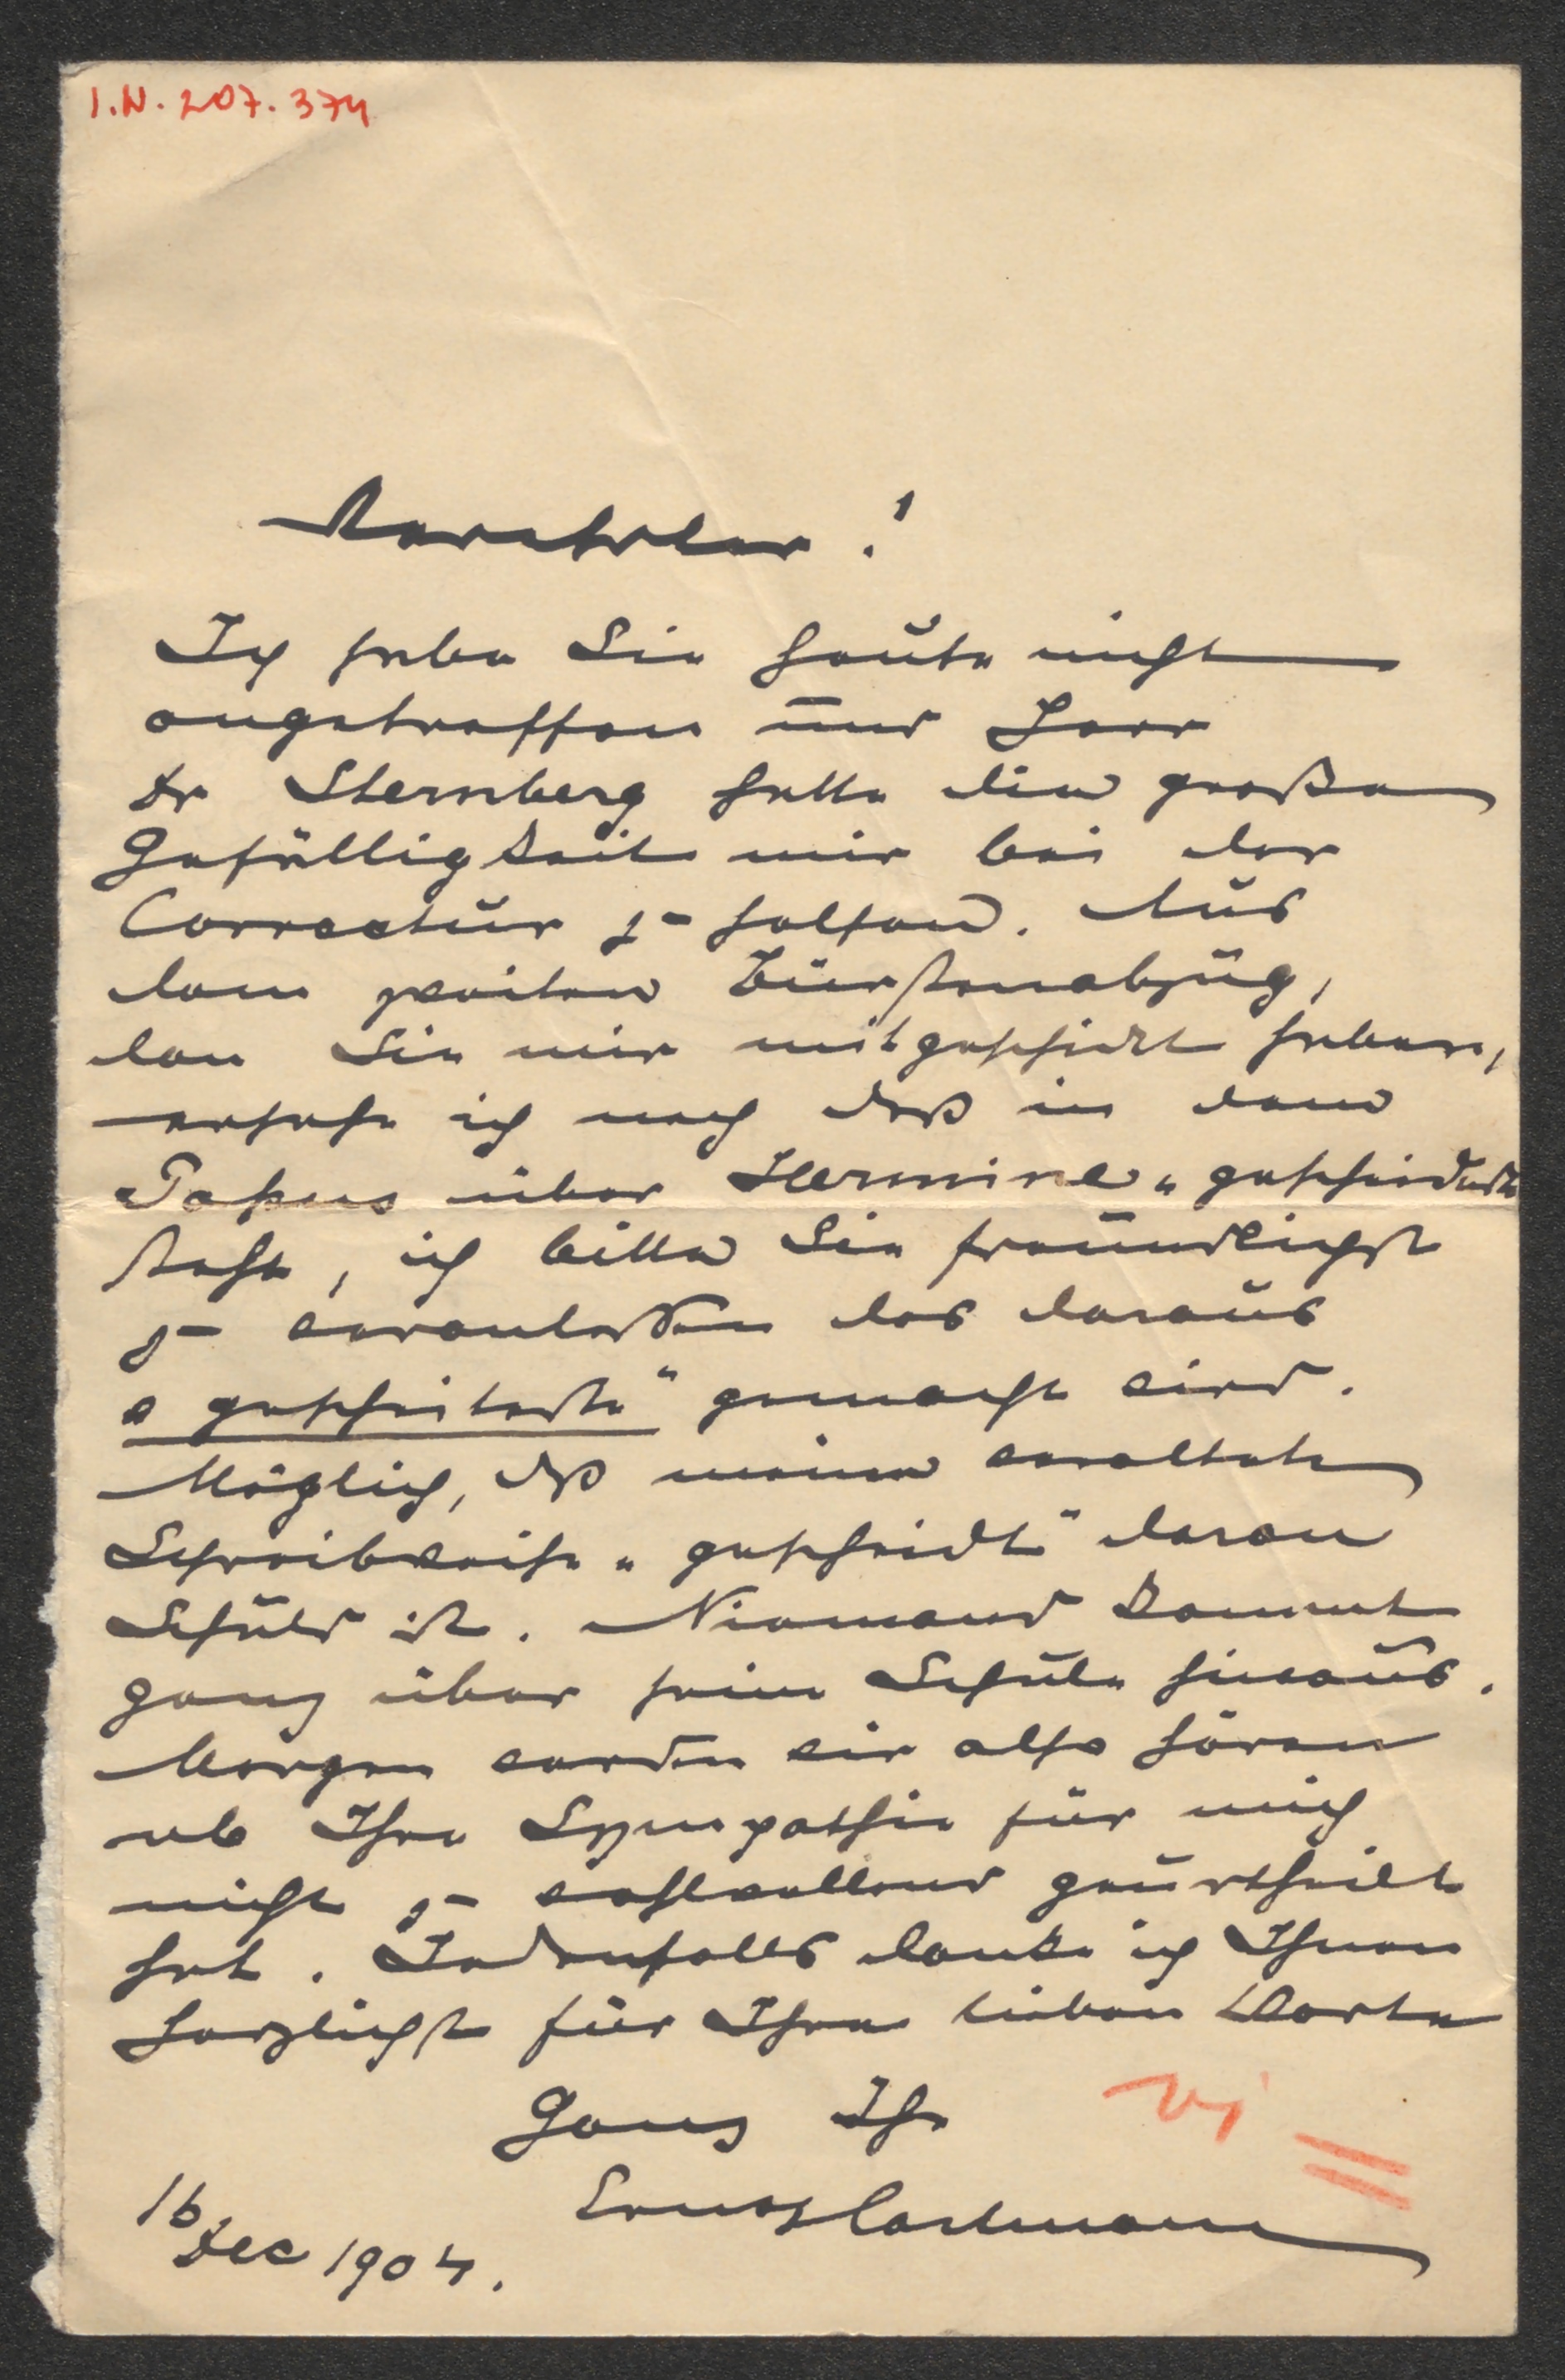 I.N. 207.374
Verehrter!
Ich habe Sie heute nicht
angetroffen und Herr
Dr Sternberg hatte die große
Gefälligkeit mir bei der
Correctur zu helfen. Aus
dem zweiten Bürstenabzug,
den Sie mir mitgeschickt haben,
ersehe ich noch daß in dem
Passus über Hermine „gescheidteste
steht, ich bitte Sie freundlichst
zu veranlassen das daraus
„gescheiteste“ gemacht wird.
Möglich, daß meine veraltete
Schreibweise „gescheidt“ daran
Schuld ist. Niemand kommt
ganz über seine Schule hinaus.
Morgen werden wir also hören
ob Ihre Sympathie für mich
nicht zu wohlwollend geurtheilt
hat. Jedenfalls danke ich Ihnen
herzlichst für Ihre lieben Worte
Ganz Ihr
Ernst Hartmann
16
Dec 1904.